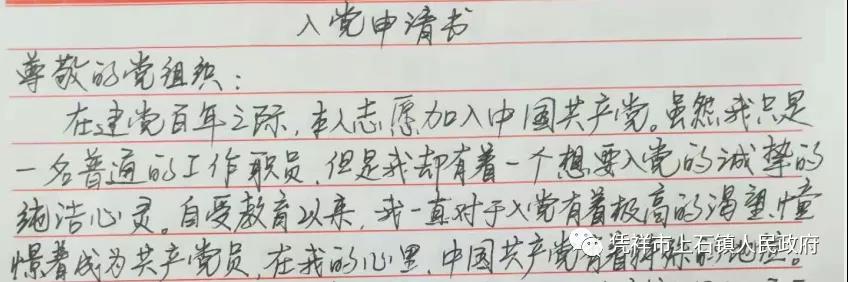 入党申请书
尊敬的党组织：
在建党百年之际，本人志愿加入中国共产党。虽然我只是
一名普通的工作职员，但是我却有着一个想要入党的诚挚的
纯洁心灵。自受教育以来，我一直对于入党有着极高的渴望、憧
憬着成为共产党员，在我的心里，中国共产党有着特殊的地位。
凭祥市上石镇人民政府